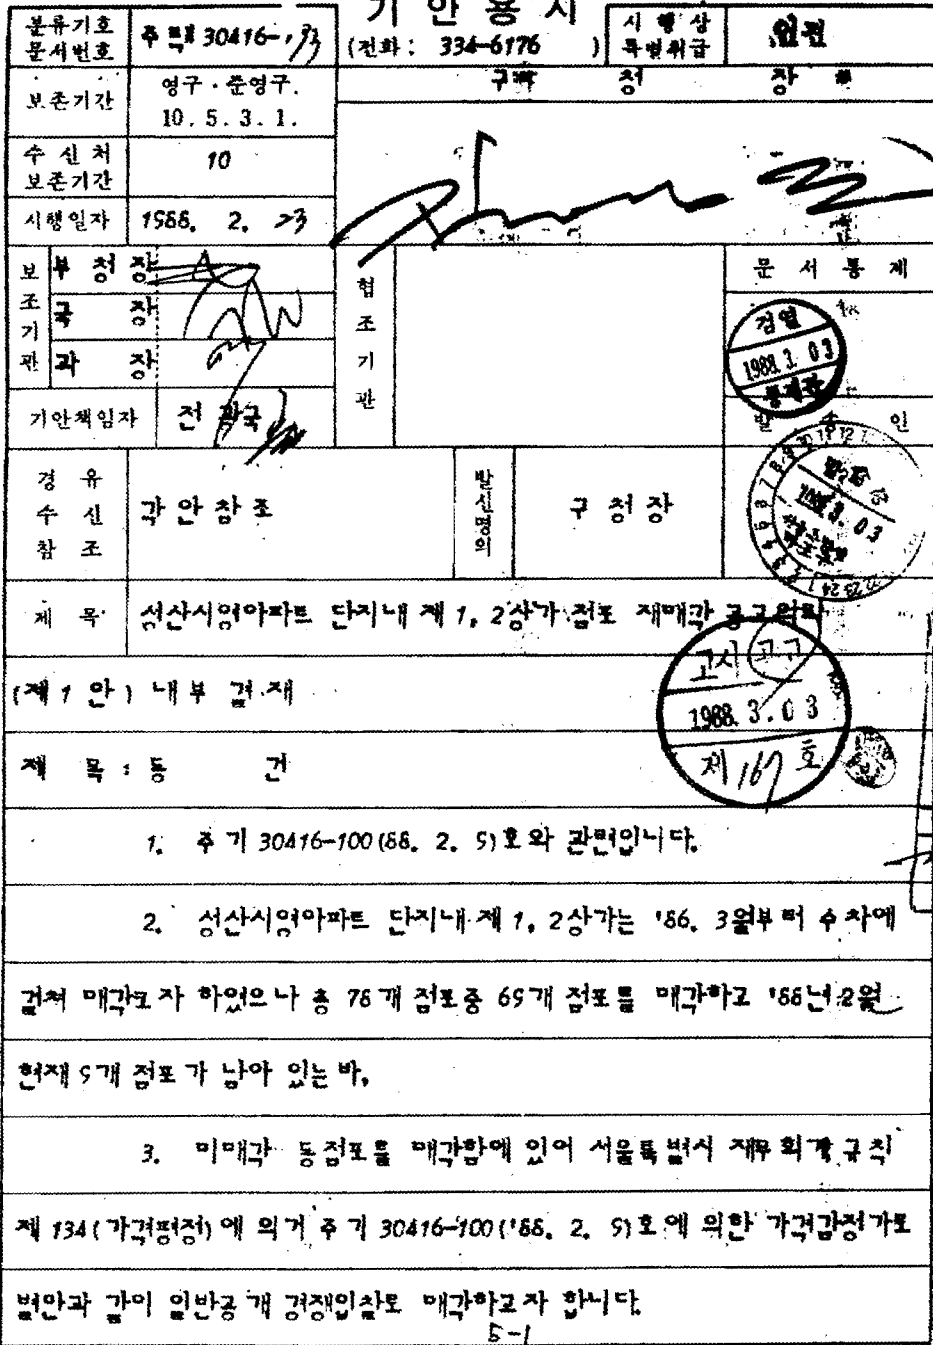 기 안 용 지
분류기호 문서번호
주 택 30416-
(전화: 334-6176 )
시 행 상 특별취급
보존기간
영구·준영구.
10. 5. 3. 1.
구 청 장
수 신 처 보존기간
10
시행일자
1988. 2. 23
보조기관
부 청 장
국 장
과 장
협조기관
문 서 통 제
검열
1988. 3. 03
통제관
기안책임자
전 광국
발 송 인
1988. 3. 03
경 유
수 신
참 조
각 안 참 조
발신명의
구 청 장
제 목
성산시영아파트 단지내 제 1, 2상가 점포 재매각 공고의뢰
고시 공고
1988. 3. 03
제 167 호
(제 1 안) 내 부 결 재
제 목 : 동 건
1. 주 기 30416-100(88. 2. 9)호와 관련입니다.
2. 성산시영아파트 단지내 제 1, 2상가는 '86. 3월부터 수차에
걸쳐 매각코자 하였으나 총 78개 점포중 69개 점포를 매각하고 '88년 2월
현재 9개 점포가 남아 있는 바,
3. 미매각 동점포를 매각함에 있어 서울특별시 재무회계규칙
제 134(가격평정)에 의거 주 기 30416-100('88. 2. 9)호에 의한 가격감정가로
별안과 같이 일반공개 경쟁입찰로 매각하고자 합니다.
5-1